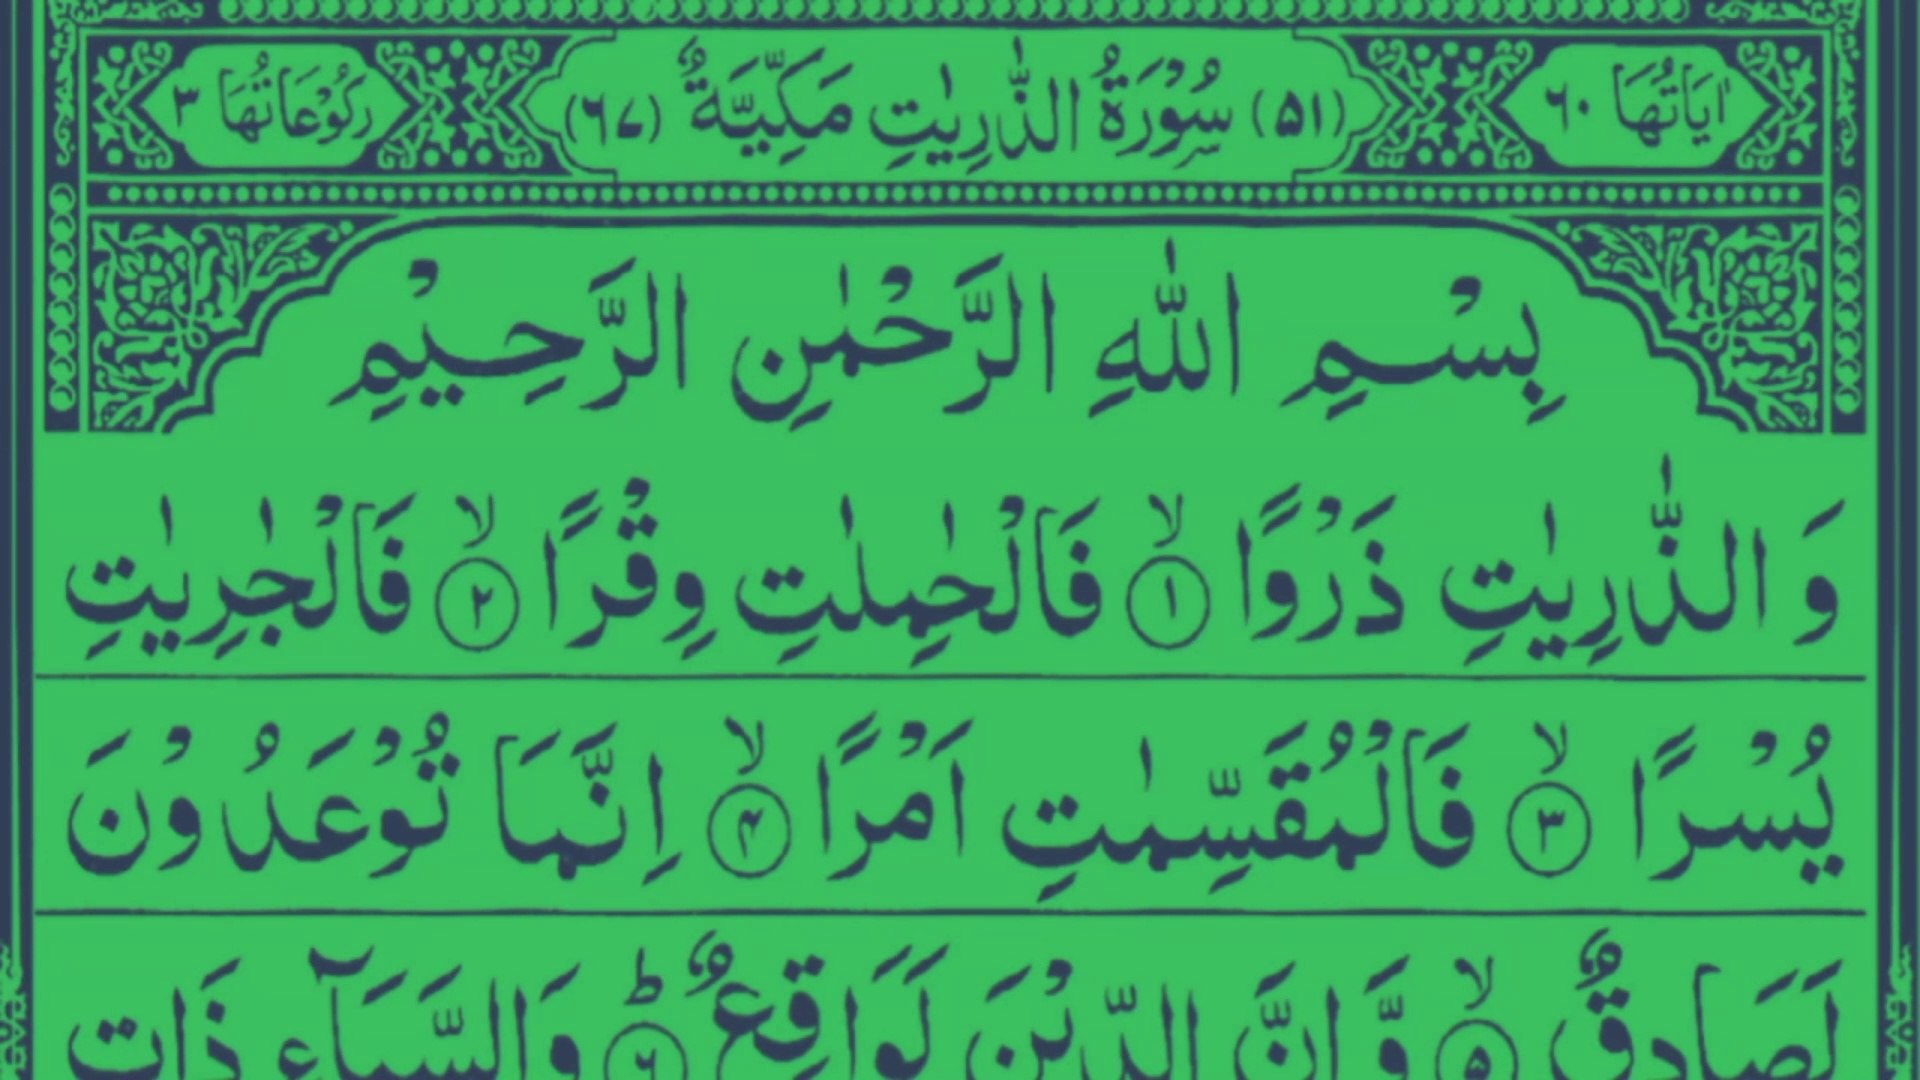 اٰيَاتُهَا ٦٠ (۵۱) سُوْرَةُ الذّٰرِيٰتِ مَكِّيَّةٌ (٦٧) رُكُوْعَاتُهَا ٣
بِسْمِ اللّٰهِ الرَّحْمٰنِ الرَّحِيْمِ
وَ الذّٰرِيٰتِ ذَرْوًا ۙ﴿۱﴾ فَالْحٰمِلٰتِ وِقْرًا ۙ﴿۲﴾ فَالْجٰرِيٰتِ
يُسْرًا ۙ﴿۳﴾ فَالْمُقَسِّمٰتِ اَمْرًا ۙ﴿۴﴾ اِنَّمَا تُوْعَدُوْنَ
لَصَادِقٌ ۙ﴿۵﴾ وَّ اِنَّ الدِّيْنَ لَوَاقِعٌ ؕ﴿۶﴾ وَالسَّمَآءِ ذَاتِ